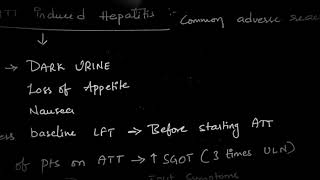 Induced Hepatitis :- Common adverse
→ DARK URINE
Loss of Appetite
Nausea
baseline LFT → Before starting ATT
of pts on ATT → ↑ SGOT (3 times ULN)
Symptoms